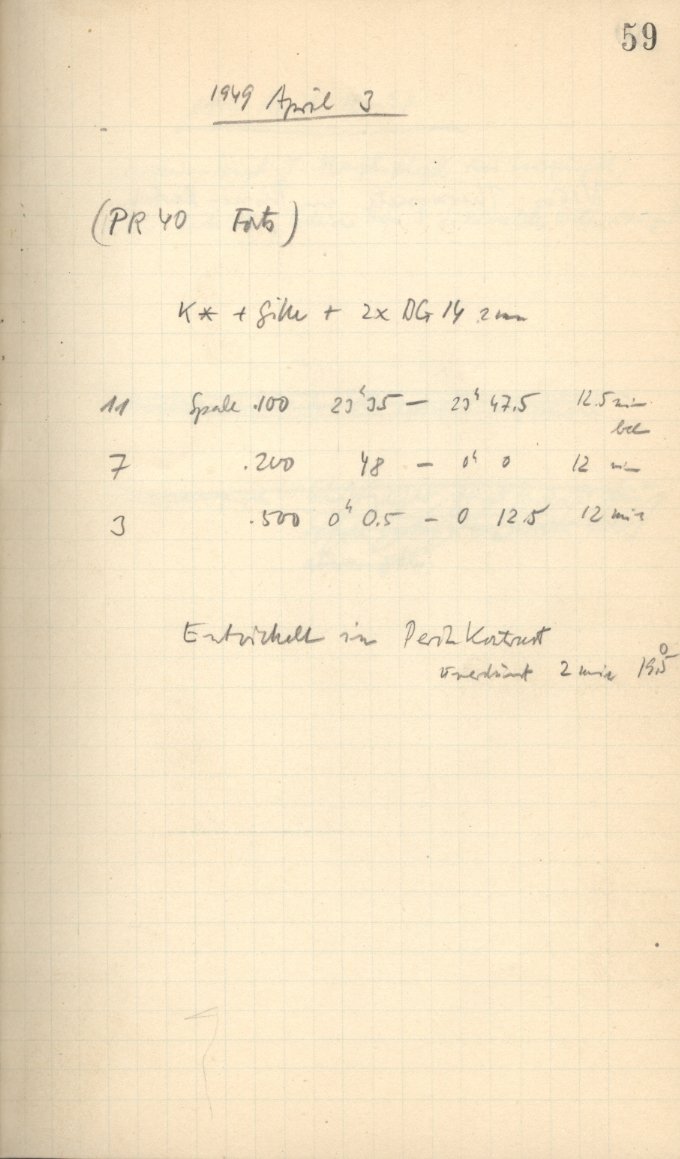 59
1949 April 3
(PR 40 Forts)
K* + + 2x DG 14 2 mm
11 Spalt .100 23ʰ35 — 23ʰ 47.5 12.5 min
bel
7 .200 48 — 0ʰ 0 12 min
3 .500 0ʰ 0.5 – 0 12.5 12 min
Entwickelt in Kontrast
unverdünnt 2 min 19.5°